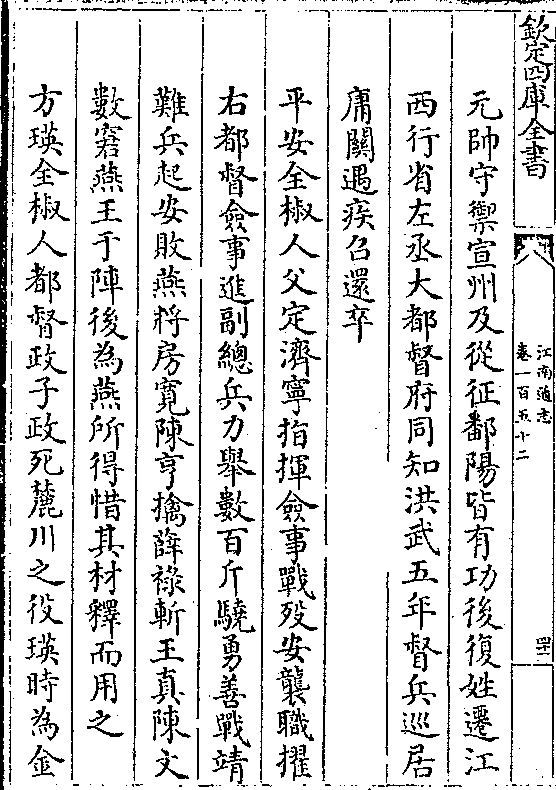 欽定四庫全書
江南通志
卷一百五十二
四十二
元帥守禦宣州及從征鄱陽皆有功後復姓遷江
西行省左丞大都督府同知洪武五年督兵巡居
庸關遇疾召還卒
平安全椒人父定濟寧指揮僉事戰歿安襲職擢
右都督僉事進副總兵力舉數百斤驍勇善戰靖
難兵起安敗燕將房寬陳亨擒薛祿斬王真陳文
數窘燕王于陣後為燕所得惜其材釋而用之
方瑛全椒人都督政子政死麓川之役瑛時為金